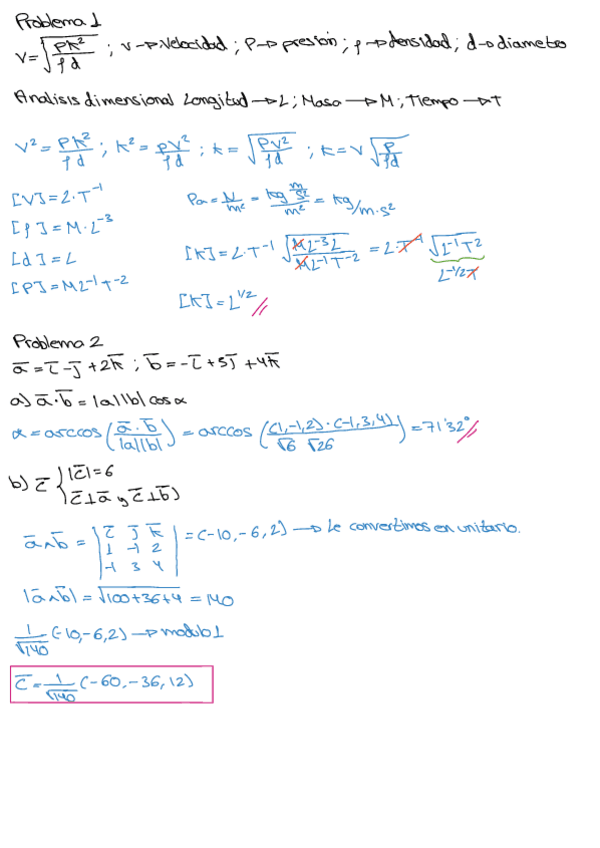 Problema 1
V=√(PK²/ρd) ; v→velocidad ; P→presión ; ρ→densidad ; d→diametro
Analisis dimensional Longitud→L ; Masa→M ; Tiempo→T
V²=PK²/ρd ; K²=ρV²/ρd ; k=√(ρV²/ρd) ; k=V√(ρ/ρd)
[V]=L·T⁻¹
Pa=N/m²=(kg m/s²)/m²=kg/m·s²
[ρ]=M·L⁻³
[d]=L
[K]=L·T⁻¹√(ML⁻³L/ML⁻¹T⁻²)=L·T⁻¹√(L⁻¹T²)
L⁻¹/²T
[P]=ML⁻¹T⁻²
[K]=L¹/²
Problema 2
a̅=i̅-j̅+2k̅ ; b̅=-i̅+3j̅+4k̅
a) a̅·b̅=|a||b|cosα
α=arccos(a̅·b̅/|a||b|)=arccos((1,-1,2)·(-1,3,4)/√6 √26)=71'32°
b) c̅ { |c̅|=6
c̅⊥a̅ y c̅⊥b̅)
a̅∧b̅=|i̅ j̅ k̅|=(-10,-6,2)→Le convertimos en unitario.
1 -1 2
-1 3 4
|a̅∧b̅|=√100+36+4=140
1/√140 (-10,-6,2)→modulo 1
c̅=1/√140 (-60,-36,12)